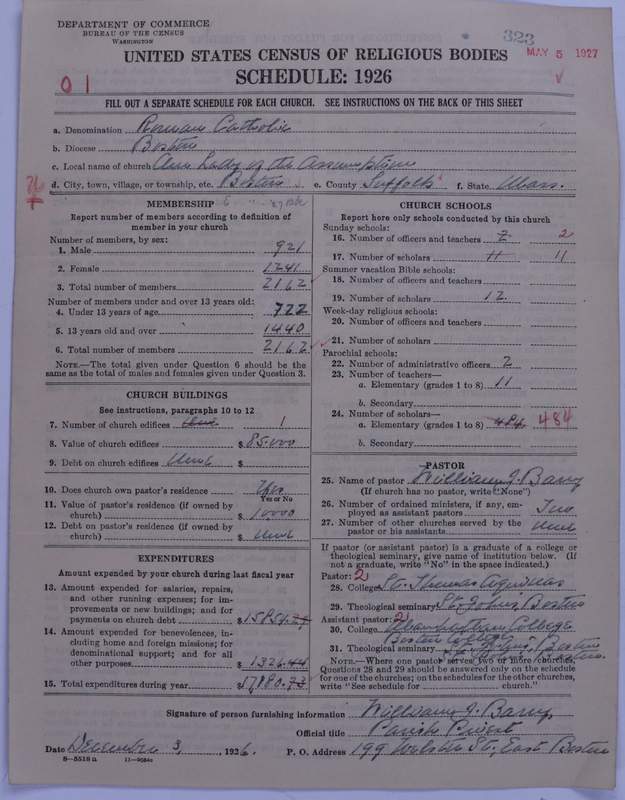 DEPARTMENT OF COMMERCE
BUREAU OF THE CENSUS
WASHINGTON
323
MAY 5 1927
UNITED STATES CENSUS OF RELIGIOUS BODIES
SCHEDULE: 1926
01
FILL OUT A SEPARATE SCHEDULE FOR EACH CHURCH. SEE INSTRUCTIONS ON THE BACK OF THIS SHEET
a. Denomination Roman Catholic
b. Diocese Boston
c. Local name of church Our Lady of the Assumption
d. City, town, village, or township, etc. Boston e. County Suffolk f. State Mass.
MEMBERSHIP
Report number of members according to definition of member in your church
Number of members, by sex:
1. Male 921
2. Female 1241
3. Total number of members 2162
Number of members under and over 13 years old:
4. Under 13 years of age 722
5. 13 years old and over 1440
6. Total number of members 2162
NOTE.—The total given under Question 6 should be the
same as the total of males and females given under Question 3.
CHURCH BUILDINGS
See instructions, paragraphs 10 to 12
7. Number of church edifices One 1
8. Value of church edifices $ 85.000
9. Debt on church edifices None $
10. Does church own pastor's residence Yes
Yes or No
11. Value of pastor's residence (if owned by
church) $ 10000
12. Debt on pastor's residence (if owned by
church) $ None
EXPENDITURES
Amount expended by your church during last fiscal year
13. Amount expended for salaries, repairs,
and other running expenses; for im-
provements or new buildings; and for
payments on church debt $
14. Amount expended for benevolences,
including home and foreign missions; for
denominational support; and for all
other purposes $ 1326.44
15. Total expenditures during year $ 17180.73
CHURCH SCHOOLS
Report here only schools conducted by this church
Sunday schools:
16. Number of officers and teachers 2 2
17. Number of scholars 11 11
Summer vacation Bible schools:
18. Number of officers and teachers
19. Number of scholars 12
Week-day religious schools:
20. Number of officers and teachers
21. Number of scholars
Parochial schools:
22. Number of administrative officers 2
23. Number of teachers—
a. Elementary (grades 1 to 8) 11
b. Secondary
24. Number of scholars—
a. Elementary (grades 1 to 8) 484 484
b. Secondary
PASTOR
25. Name of pastor William J. Barry
(If church has no pastor, write "None")
26. Number of ordained ministers, if any, em-
ployed as assistant pastors Two
27. Number of other churches served by the
pastor or his assistants None
If pastor (or assistant pastor) is a graduate of a college or
theological seminary, give name of institution below. (If
not a graduate, write "No" in the space indicated.)
Pastor: 2
28. College St. Thomas Aquinas
29. Theological seminary St. Johns, Boston
Assistant pastor: 2
30. College Manhattan College
Boston College
31. Theological seminary St. Johns, Boston
NOTE.—Where one pastor serves two or more churches,
Questions 28 and 29 should be answered only on the schedule
for one of the churches; on the schedules for the other churches,
write "See schedule for church."
Signature of person furnishing information William J. Barry
Official title Parish Priest
Date December 3, 1926. P. O. Address 199 Webster St., East Boston
8—5518 a 11—9034a